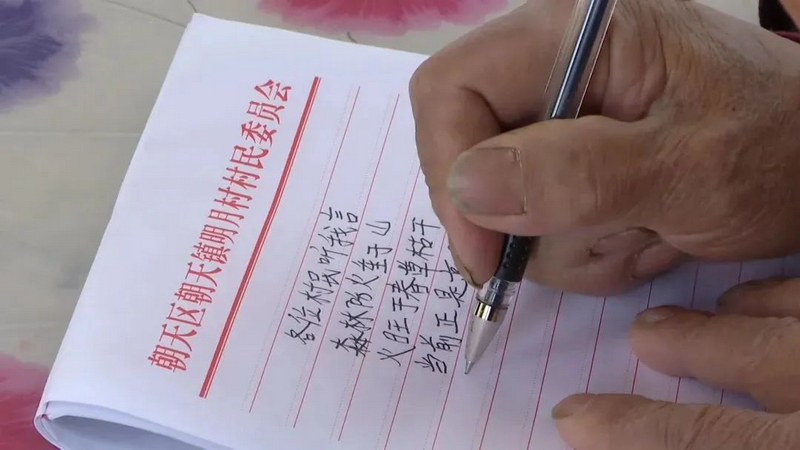 朝天区朝天镇明月村村民委员会
各位村民听我言
森林防火重于山
火旺于春草枯干
当前正是